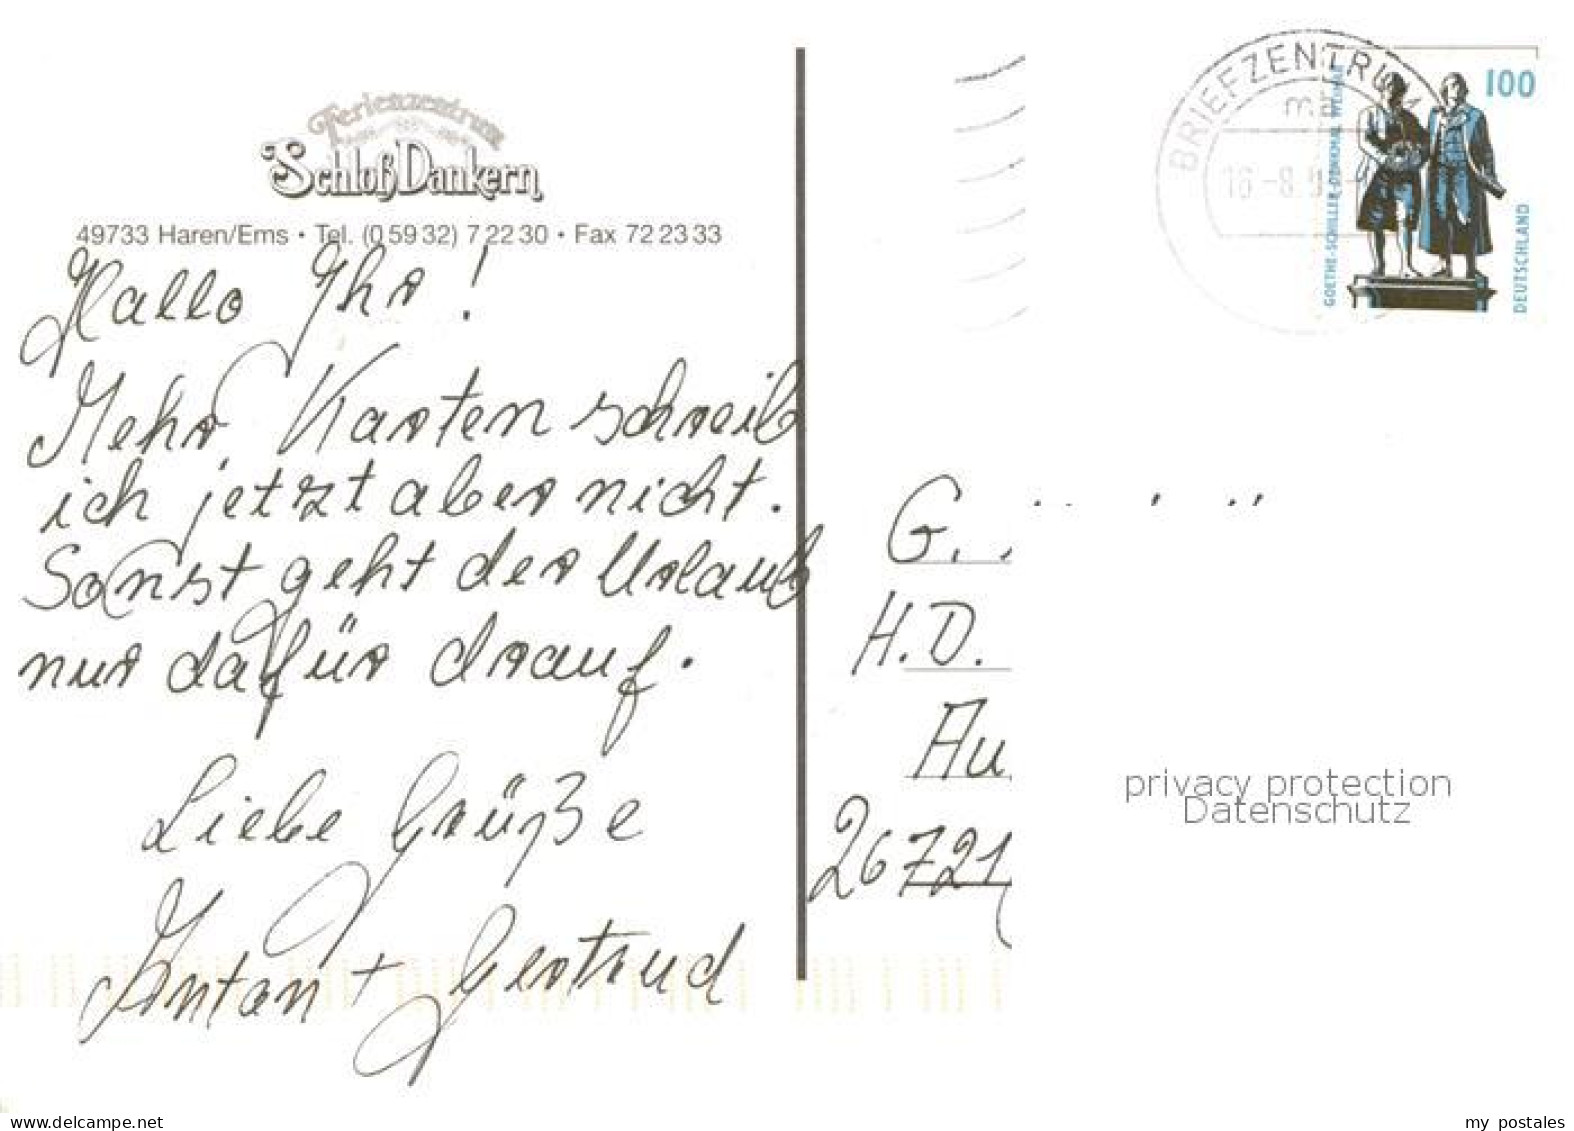 Ferienzentrum
Schloß Dankern
49733 Haren/Ems • Tel. (0 59 32) 7 22 30 • Fax 72 23 33
Hallo Ihr!
Mehr Karten schreib
ich jetzt aber nicht.
Sonst geht der Urlaub
nur dafür drauf.
Liebe Grüße
Anton + Gertrud
BRIEFZENTRUM
GOETHE-SCHILLER-DENKMAL WEIMAR
100
DEUTSCHLAND
G.
H.D.
Au
26721
privacy protection
Datenschutz
www.delcampe.net
my postales